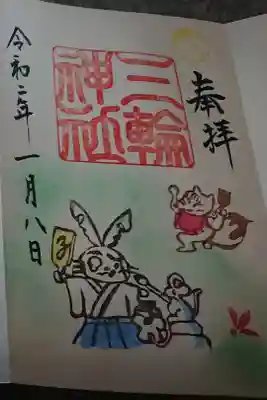 奉拝
三輪
神社
令和二年
一月八日
子